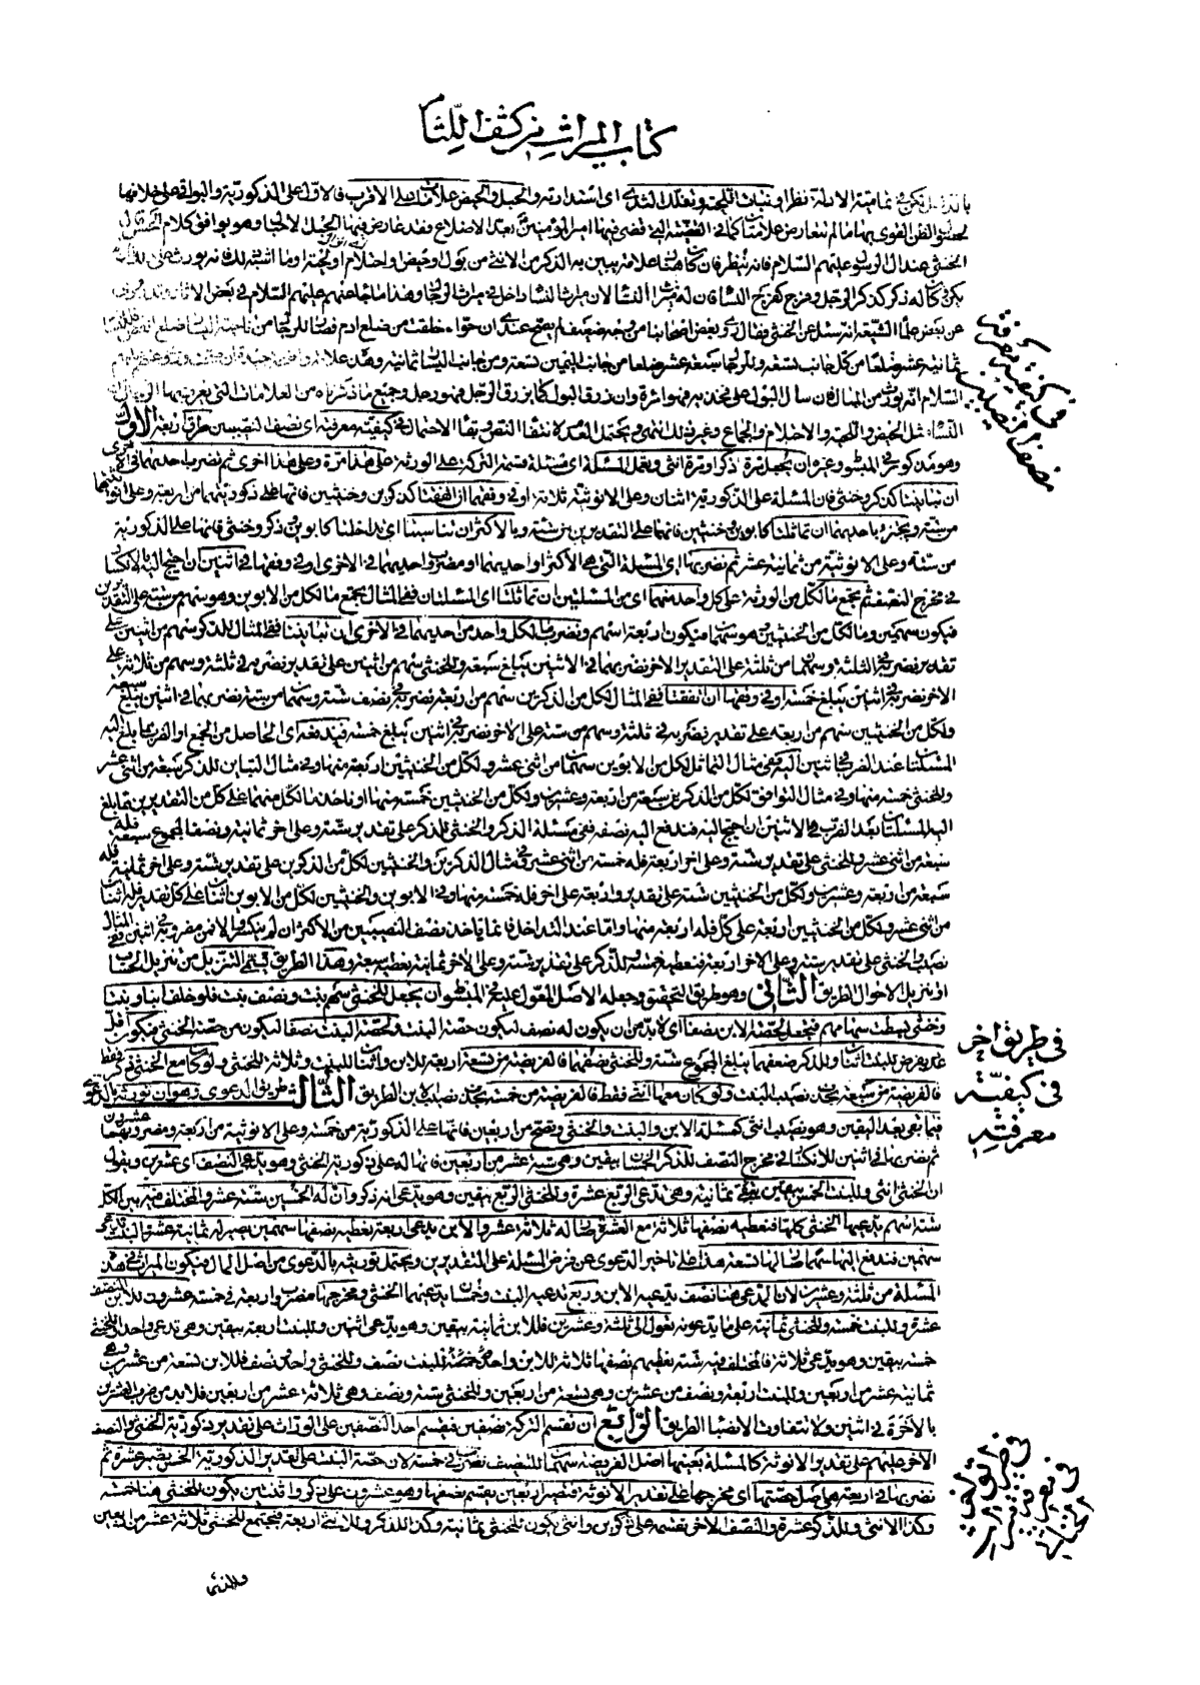 كتاب الميراث من كشف اللثام
نظرا ونبات اللحية وتفلك الثدي اى استدارته والحبل والحيض علامات على الاقرب فالاول على الذكورية والبواقى على خلافها
لحصول الظن القوى بها ما لم يتعارض علامتان كما في القضية التي قضى فيها امير المؤمنين بعد الاضلاع وهو يوافق كلام الحسن قال
الخنثى عند ال الرسول عليهم السلام فانه ينظر فان كان هناك علامة يبين به الذكر من الانثى من بول او حيض او احتلام او لحية وما اشبه ذلك فانه يورث على ذلك
يكون له ذكر كذكر الرجل وفرج كفرج النساء فان له ميراث النساء لان ميراث النساء داخل في ميراث الرجال وهذا ما جاء عنهم عليهم السلام في بعض الاثار
عن بعض علماء الشيعة انه سئل عن الخنثى فقال روى بعض اصحابنا من وجه ضعيف لم يصح عندي ان حواء خلقت من ضلع ادم فصار للرجال من ناحية اليسار ضلع انقص
ثمانية عشر ضلعا من كل جانب تسعة وللرجال سبعة عشر ضلعا من جانب اليمين تسعة ومن جانب اليسار ثمانية وهذه علامة
السلام انه يورث من المبال فان سال البول على فخذيه فهو امراة وان زرق البول كما يزرق الرجل فهو رجل وجميع ما ذكرناه من العلامات التي يعرف بها الرجال
النساء مثل الحيض واللحية والاحتلام والجماع وغير ذلك انتهى ويحتمل العدم لانتفاء النص وبقاء الاحتمال في كيفية معرفته اى نصف النصيبين طرق اربعة الاول
وهو مذكور في المبسوط وغيره ان يجعل مرة ذكرا ومرة انثى وتعمل المسئلة اى مسئلة قسمة التركة على الورثة على هذا مرة وعلى هذا اخرى ثم تضرب احديهما في الاخرى
ان تباينتا كذكر وخنثى فان المسئلة على الذكورية اثنان وعلى الانوثية ثلاثة او في وفقها ان اتفقتا كذكرين وخنثيين فانها على ذكوريتهما من اربعة وعلى انوثيتهما
من ستة ويجتزء باحديهما ان تماثلتا كابوين وخنثيين فانها على التقديرين من ستة وبالاكثر ان تناسبتا اى تداخلتا كابوين وذكر وخنثى فانها على الذكورية
من ستة وعلى الانوثية من ثمانية عشر ثم تضربها اى المسئلة التي هي الاكثر او احديهما او مضروب احديهما في الاخرى او في وفقها في اثنين ان احتيج اليه لانكسار
في مخرج النصف ثم يجمع ما لكل من الورثة على كل واحد منهما اى من المسئلتين ان تماثلتا اى المسئلتان ففي المثال يجمع ما لكل من الابوين وهو سهم من ستة على التقديرين
فيكون سهمين وما لكل من الخنثيين وهو سهمان فيكون اربعة اسهم وتضرب ما لكل واحد من احديهما في الاخرى ان تباينتا ففي المثال للذكر سهم من اثنين على
تقدير نضربه في الثلثة وسهمان من ثلثة على التقدير الاخر نضربهما في الاثنين يبلغ سبعة وللخنثى سهم من اثنين على تقدير نضربه في ثلثة وسهم من ثلاثة على
الاخر نضربه في اثنين يبلغ خمسة او في وفقها ان اتفقتا ففي المثال لكل من الذكرين سهم من اربعة نضربه في نصف ستة وسهمان من ستة نضربهما في اثنين يبلغ سبعة
ولكل من الخنثيين سهم من اربعة على تقدير نضربه في ثلثة وسهم من ستة على الاخر نضربه في اثنين يبلغ خمسة فيدفعه اى الحاصل من الجمع او الضرب مما بلغ اليه
المسئلتان بعد الضرب في اثنين اليه ففي مثال التماثل لكل من الابوين سهمان من اثنى عشر ولكل من الخنثيين اربعة منها وفي مثال التباين للذكر سبعة من اثنى عشر
وللخنثى خمسة منها وفي مثال التوافق لكل من الذكرين سبعة من اربعة وعشرين ولكل من الخنثيين خمسة منها او تاخذ ما لكل منهما على كل من التقديرين مما بلغ
اليه المسئلتان بعد الضرب في الاثنين ان احتيج اليه فتدفع اليه نصفه ففي مسئلة الذكر والخنثى للذكر على تقدير ستة وعلى اخر ثمانية ونصف المجموع سبعة فله
سبعة من اثنى عشر وللخنثى على تقدير ستة وعلى اخر اربعة فله خمسة من اثنى عشر في مثال الذكرين والخنثيين لكل من الذكرين على تقدير ستة وعلى اخر ثمانية فله
سبعة من اربعة وعشرين ولكل من الخنثيين ستة على تقدير واربعة على اخر فله خمسة منها وفي الابوين والخنثيين لكل من الابوين اثنان على كل تقدير فله اثنان
من اثنى عشر ولكل من الخنثيين اربعة على كل فله اربعة منها واما عند التداخل فانما ياخذ نصف النصيبين من الاكثر
نصيب الخنثى على تقدير ستة وعلى الاخر اربعة فنعطيه خمسة وللذكر على تقدير ستة وعلى الاخر ثمانية نعطيه سبعة وهذا الطريق يسمى التنزيل من تنزيل الحساب
او تنزيل الاحوال الطريق الثاني وهو طريق التحقيق وجعله الاصل المعول عليه في المبسوط ان يجعل للخنثى سهم بنت ونصف بنت فلو خلف ابنا وبنتا
وخنثى بسطت سهامهم فتجعل لحصة الابن نصفا اى لا بد من ان يكون له نصف ليكون حصة البنت ولحصة البنت نصفا ليكون من حصة الخنثى فيكون اقل
عدد يفرض للبنت اثنان وللذكر ضعفهما يبلغ المجموع ستة وللخنثى نصفها فالفريضة من تسعة اربعة للابن واثنان للبنت وثلاثة للخنثى ولو كان مع الخنثى ذكر فقط
فالفريضة من سبعة بحذف نصيب البنت ولو كان معها انثى فقط فالفريضة من خمسة بحذف نصيب الابن الطريق الثالث طريق الدعوى وهو ان نورثه بالدعوى
فيما بقى بعد اليقين وهو نصيب انثى كمسئلة الابن والبنت والخنثى وتصح من اربعين فانها على الذكورية من خمسة وعلى الانوثية من اربعة ومضروبهما عشرون
ثم نضربها في اثنين للانكسار في مخرج النصف للذكر الخمسان بيقين وهي ستة عشر من اربعين فانها له على ذكورية الخنثى وهو يدعى النصف اى عشرين ويقول
ان الخنثى انثى وللبنت الخمس بيقين ثمانية وهي تدعى الربع عشرة وللخنثى الربع بيقين وهو يدعى انه ذكر وان له الخمسين ستة عشر والمختلف فيه بين الكل
ستة اسهم يدعيها الخنثى كلها فنعطيه نصفها ثلاثة مع العشرة صار له ثلاثة عشر والابن يدعى اربعة نعطيه نصفها سهمين يصير له ثمانية عشر والبنت تدعى
سهمين فندفع اليها سهما صار لها تسعة هذا على تاخير الدعوى عن فرض المسئلة على التقديرين ويحتمل توريثه بالدعوى من اصل المال فيكون الميراث في هذه
المسئلة من ثلثة وعشرين لان المدعى هنا نصف يدعيه الابن وربع تدعيه البنت وخمسان يدعيهما الخنثى ومخرجها مضروب اربعة في خمسة عشرون للابن النصف
عشرة وللبنت خمسة وللخنثى ثمانية على ما يدعونه تعول الى ثلثة وعشرين فللابن ثمانية بيقين وهو يدعى اثنين وللبنت اربعة بيقين وهي تدعى واحدا وللخنثى
خمسة بيقين وهو يدعى ثلاثة فالمختلف فيه ستة نعطيهم نصفها ثلاثة للابن واحد وللبنت نصف وللخنثى واحد ونصف فللابن تسعة من عشرين وهي
ثمانية عشر من اربعين وللبنت اربعة ونصف من عشرين وهي تسعة من اربعين وللخنثى ستة ونصف وهي ثلاثة عشر من اربعين فلا بد من ضرب العشرين
بالاخرة في اثنين ولا تتفاوت الانصباء الطريق الرابع ان تقسم التركة نصفين فيقسم احد النصفين على الوراث على تقدير ذكورية الخنثى والنصف
الاخر عليهم على تقدير الانوثية كالمسئلة بعينها اصل الفريضة سهمان للنصف نضرب في خمسة لان حصة البنت على تقدير الذكورية الخمس يصير عشرة ثم
نضربها في اربعة هي اصل حصتها اى مخرجها على تقدير الانوثية فتصير اربعين يقسم نصفها وهو عشرون على ذكر واثنتين يكون للخنثى هنا خمسة
وكذا الانثى وللذكر عشرة والنصف الاخر تقسمه على ذكرين وانثى يكون للخنثى ثمانية وكذا للذكر وللانثى اربعة فيجتمع للخنثى ثلاثة عشر من اربعين
وللانثى
في كيفية معرفة
نصف النصيبين
في طريق اخر
في كيفية
معرفته